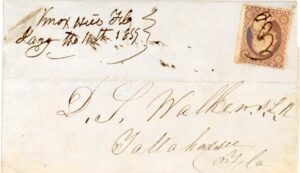 Knox Hill Fla
Jany the 10th 1859
D. L. Walker
Tallahassee
Fla